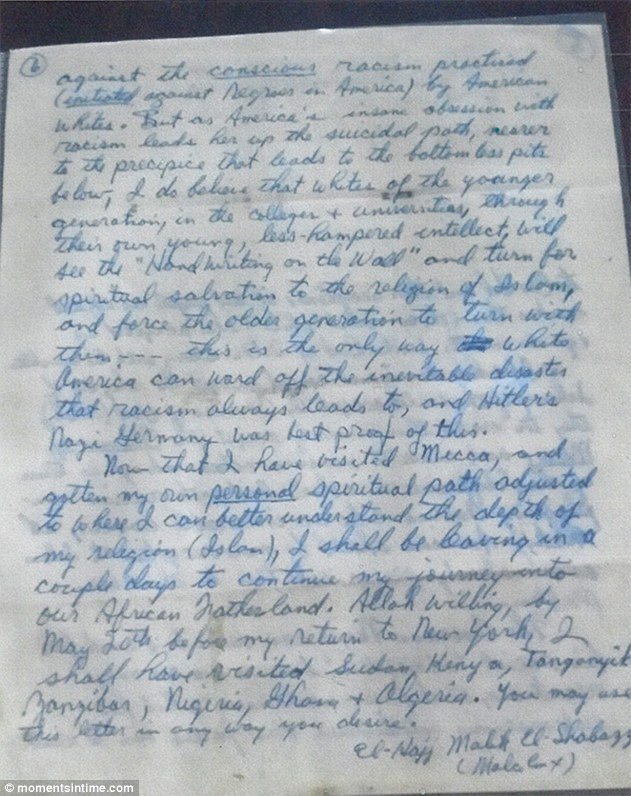 6
against the conscious racism practised
(initiated against Negroes in America) by American
whites. But as America's insane obsession with
racism leads her up the suicidal path, nearer
to the precipice that leads to the bottomless pits
below, I do believe that whites of the younger
generation, in the colleges + universities, through
their own young, less-hampered intellect, will
see the "Handwriting on the Wall" and turn for
spiritual salvation to the religion of Islam,
and force the older generation to turn with
them--- this is the only way white
America can ward off the inevitable disaster
that racism always leads to, and Hitler's
Nazi Germany was best proof of this.
Now that I have visited Mecca, and
gotten my own personal spiritual path adjusted
to where I can better understand the depth of
my religion (Islam), I shall be leaving in a
couple days to continue my journey into
our African Fatherland. Allah willing, by
May 20th before my return to New York, I
shall have visited Sudan, Kenya, Tanganyik
Zanzibar, Nigeria, Ghana + Algeria. You may use
this letter in any way you desire.
El-Hajj Malik El-Shabazz
(Malcolm X)
© momentsintime.com